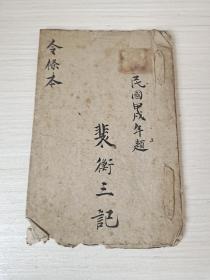 民國甲戌年題
裴衡三記
令條本